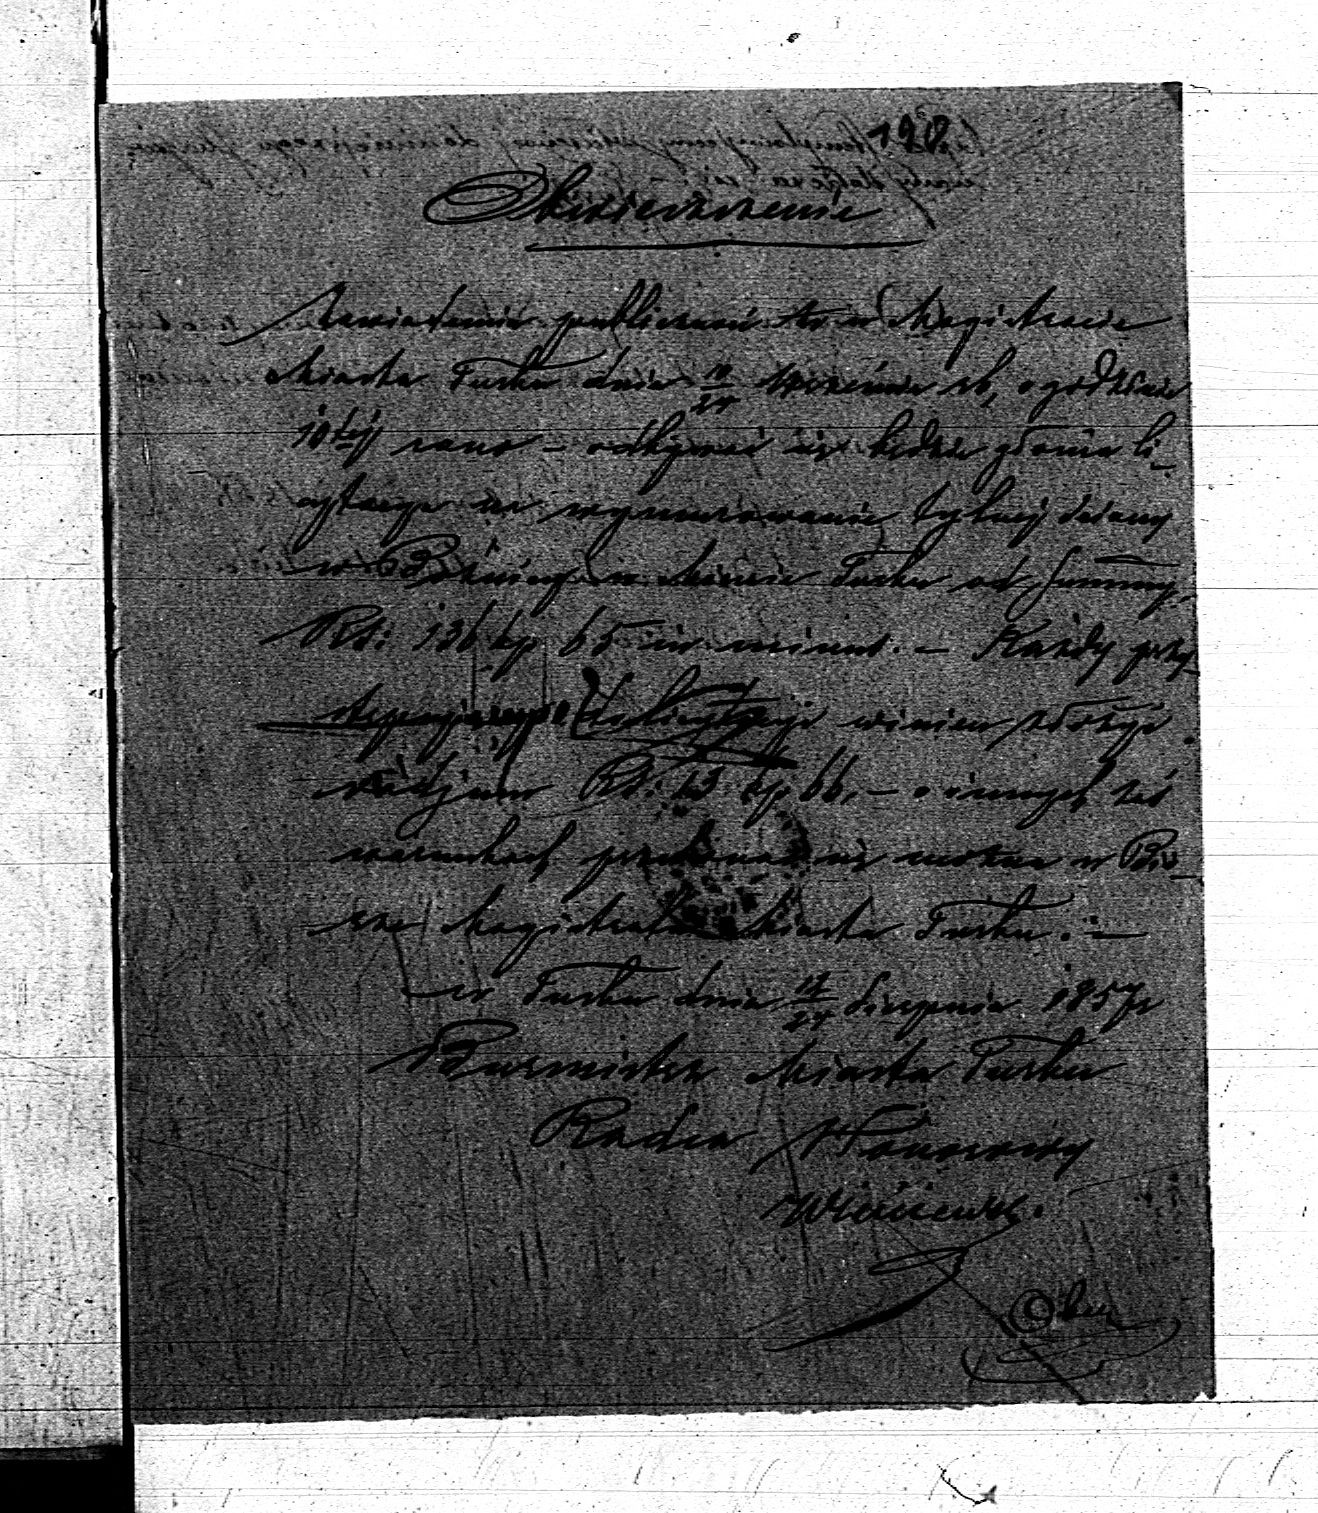 Obwieszczenie
Zawiadamia publiczność że w Magistracie
Miasta Turku dnia 12/24 Września rb, o godzinie
10tej rano – odbywać się będzie głośna li-
cytacya na wymurowanie tylnej ściany
w Bóżnicy w Mieście Turku od summy
RS: 136 kp 65 in minus. – Każdy przy-
stępujący do licytacyi winien złożyć
vadjum RS: 13 kp 66, – o innych zaś
warunkach przekonać się można w Biu-
rze Magistratu Miasta Turku. –
w Turku dnia 12/24 Sierpnia 1857 r
Burmistrz Miasta Turku
Radca Honorowy